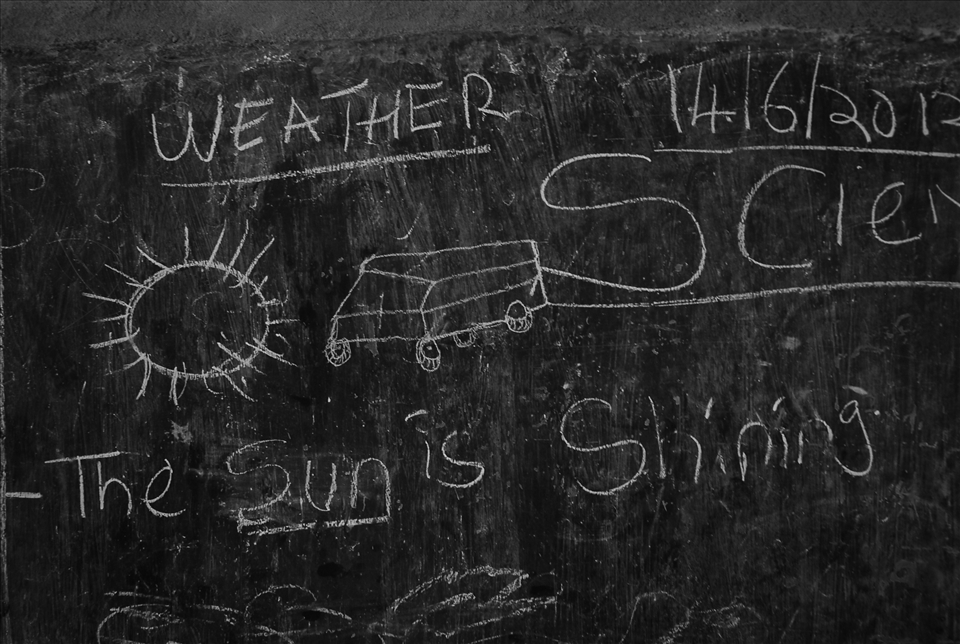 WEATHER 14/6/2012
SCien
- The Sun is Shining